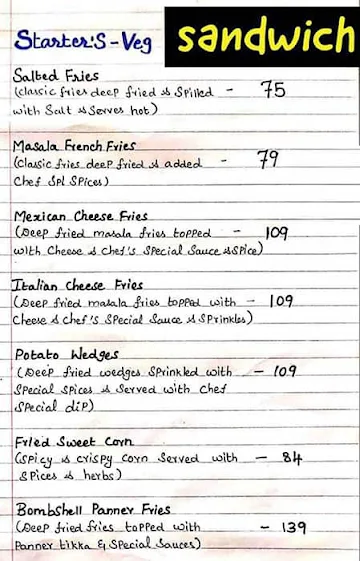 Starter'S - Veg
sandwich
Salted Fries
(classic fries deep fried & spilled - 75
with Salt & Serves hot)
Masala French Fries
(Classic fries deep fried & added - 79
Chef Spl Spices)
Mexican Cheese Fries
(Deep fried masala fries topped - 109
with Cheese & Chef's Special Sauce & Spice)
Italian Cheese Fries
(Deep fried masala fries topped with - 109
Cheese & Chef's Special Sauce & Sprinkles)
Potato Wedges
(Deep fried wedges Sprinkled with - 109
Special Spices & Served with Chef
Special dip)
Fried Sweet Corn
(Spicy & crispy corn Served with - 84
Spices & herbs)
Bombshell Panner Fries
(Deep fried fries topped with - 139
Panner tikka & Special Sauces)